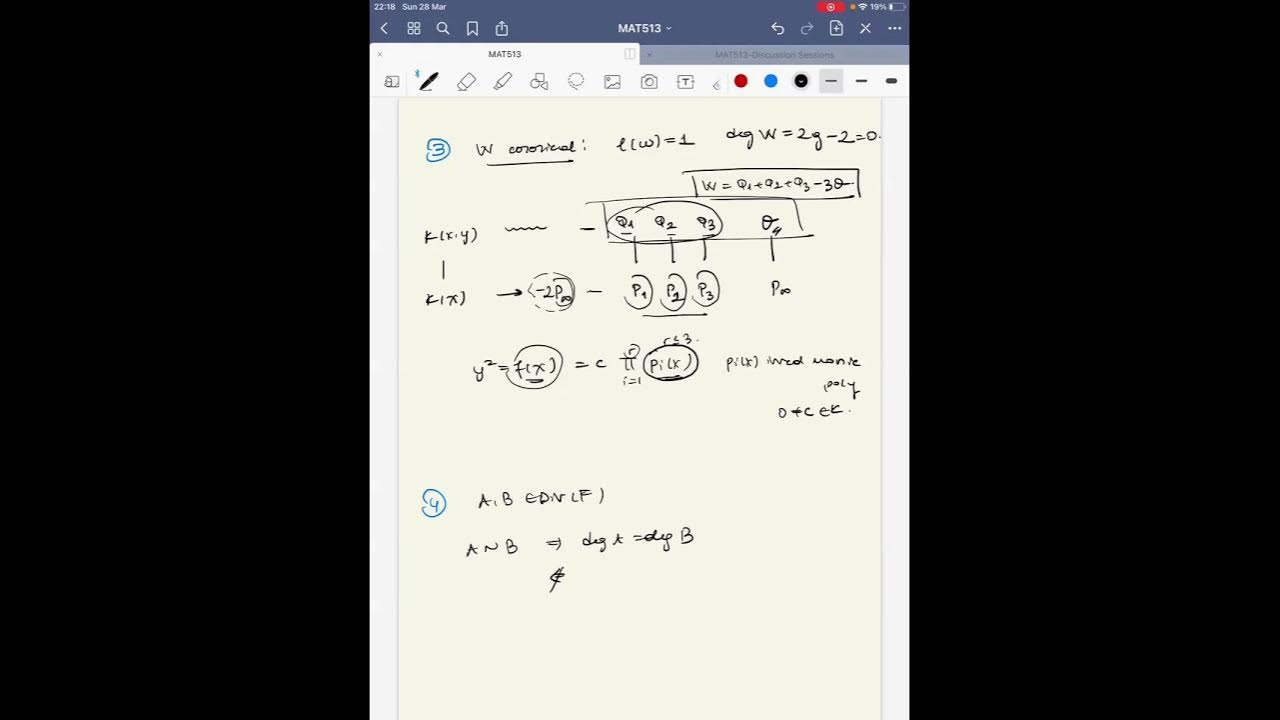 22:18 Sun 28 Mar 19%
MAT513
MAT513 MAT513-Discussion Sessions
③ W canonical: ℓ(W)=1 deg W = 2g-2=0.
W = Q1+Q2+Q3-3Q
K(x,y) — Q1 Q2 Q3
K(x) → -2P∞ — P1 P2 P3 P∞
y² = f(x) = c ∏ pi(x) pi(x) irred monic
i=1 r r≤3.
poly
0≠c∈K.
④ A,B ∈ DIV(F)
A~B ⇒ deg A = deg B
⇍